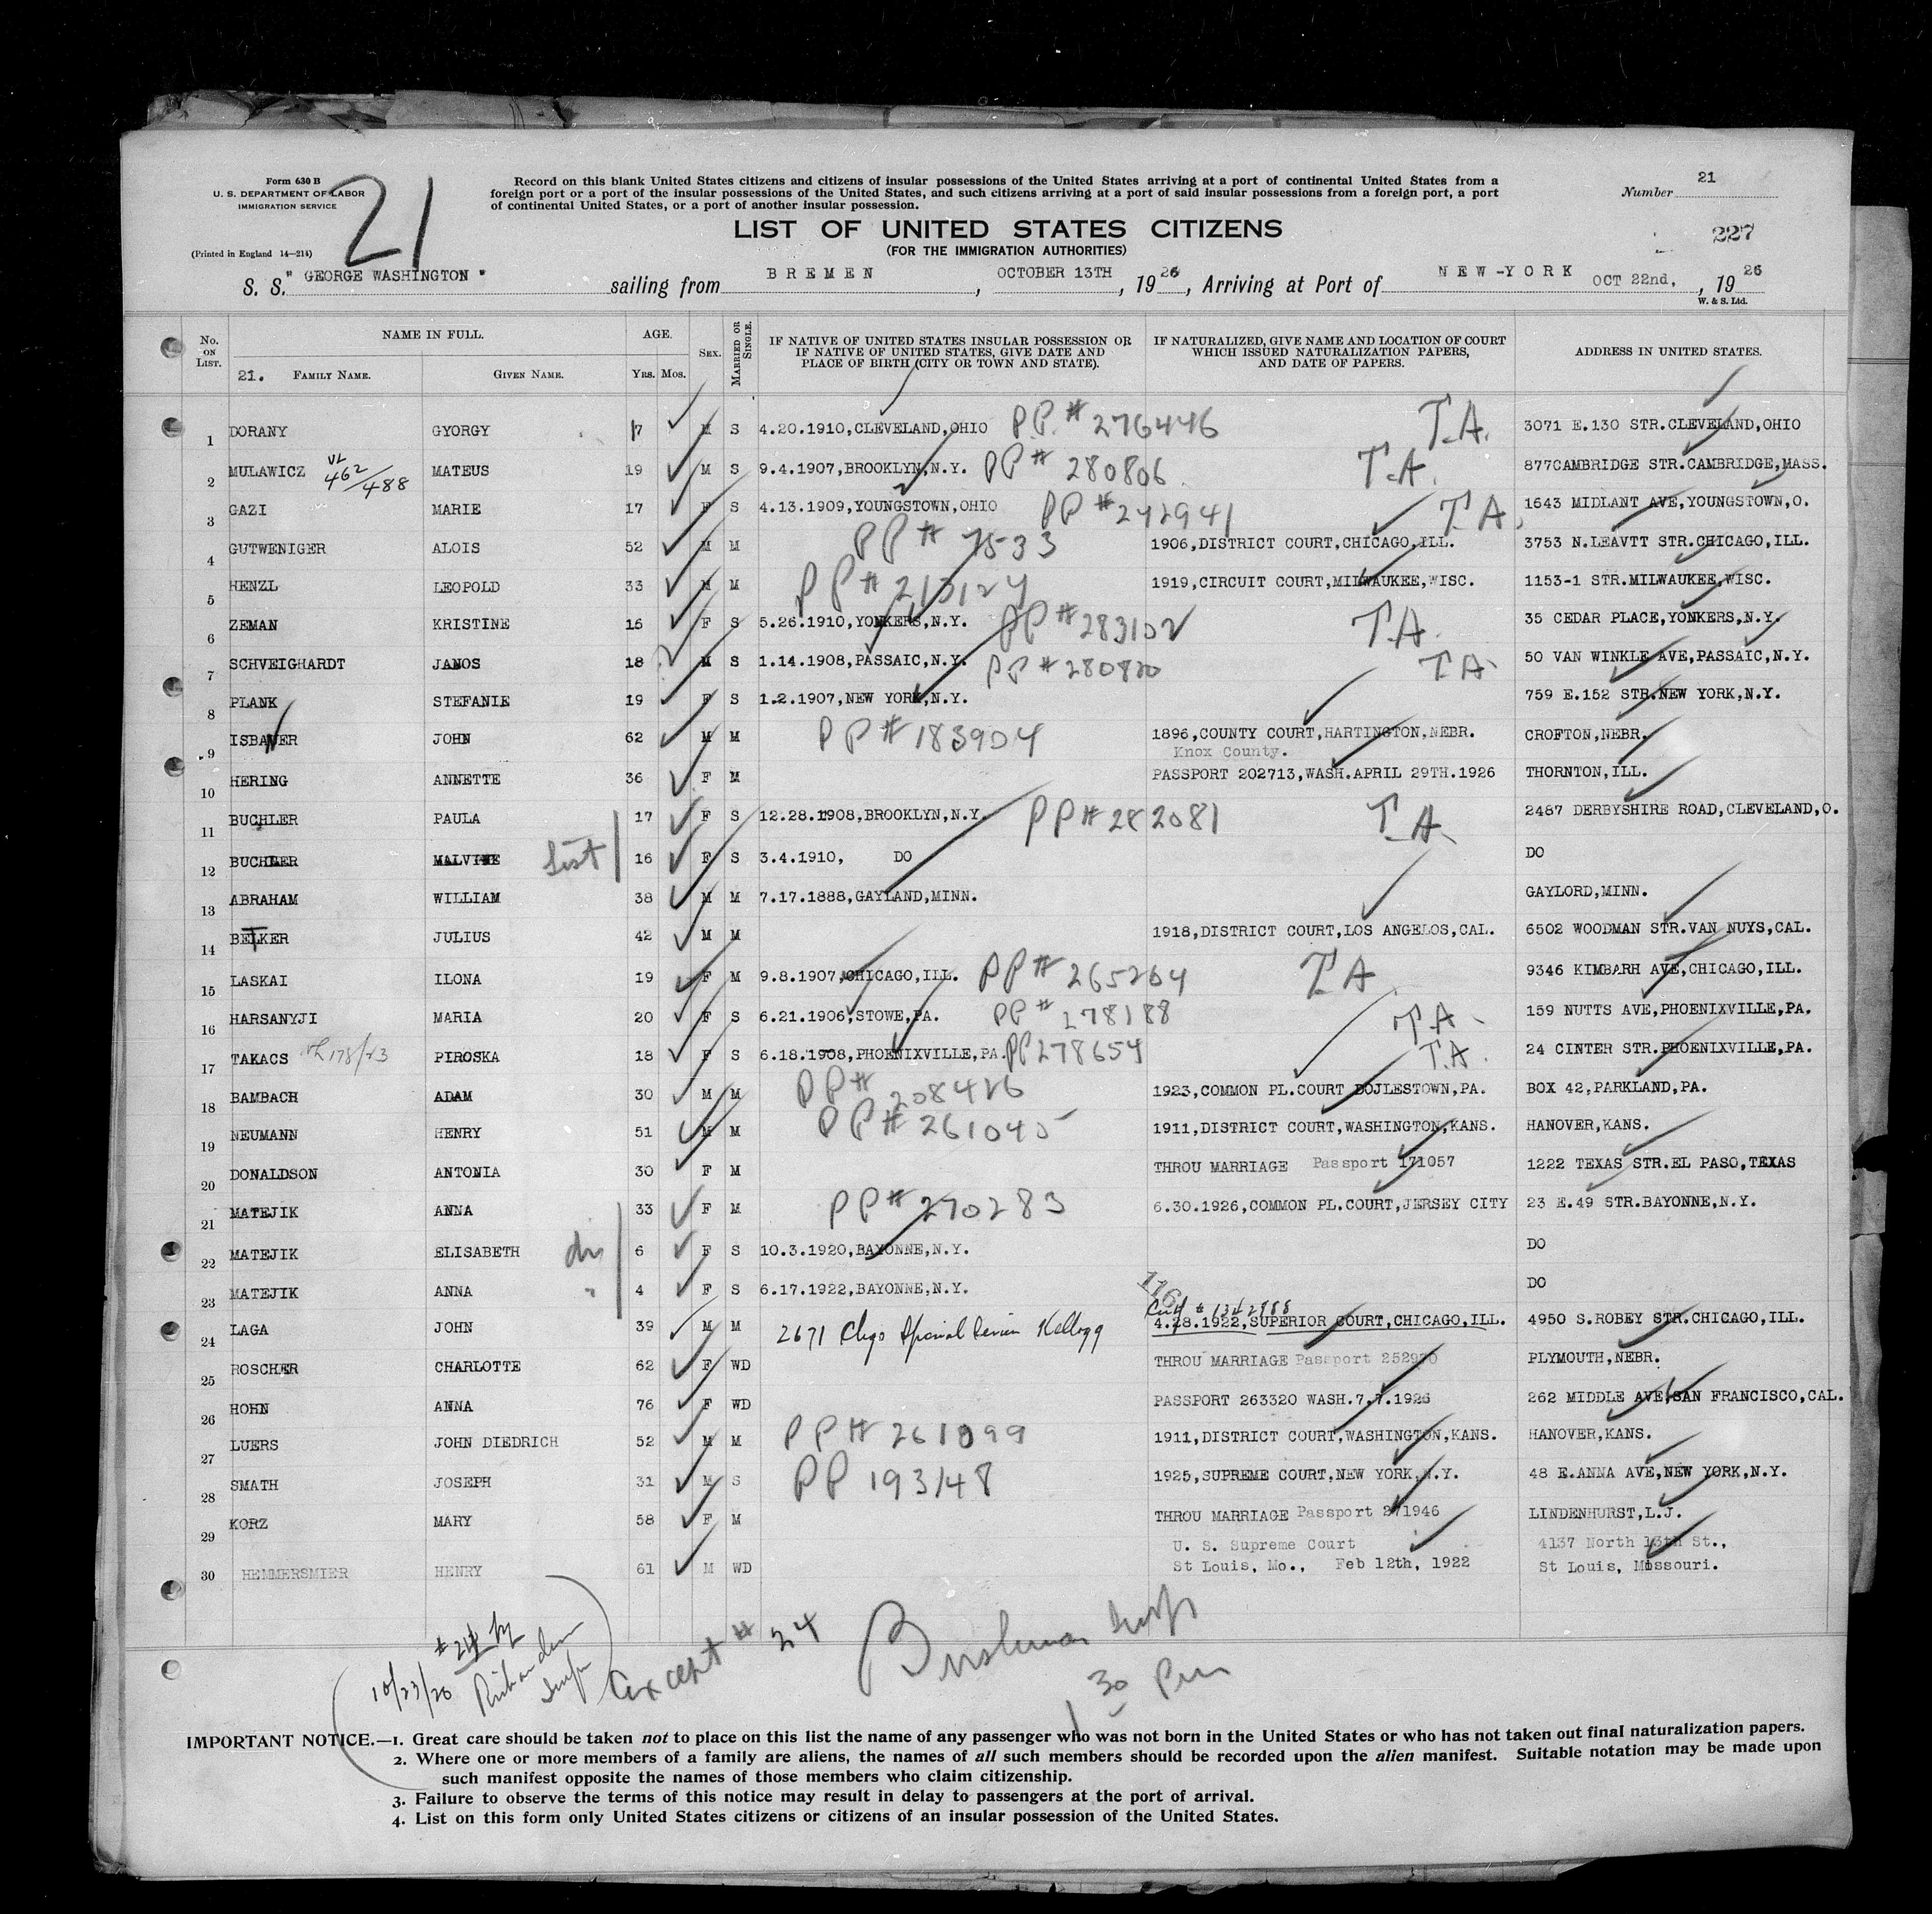 Form 630 B
U. S. DEPARTMENT OF LABOR
IMMIGRATION SERVICE
(Printed in England 14—214)
21
Record on this blank United States citizens and citizens of insular possessions of the United States arriving at a port of continental United States from a
foreign port or a port of the insular possessions of the United States, and such citizens arriving at a port of said insular possessions from a foreign port, a port
of continental United States, or a port of another insular possession.
Number 21
227
LIST OF UNITED STATES CITIZENS
(FOR THE IMMIGRATION AUTHORITIES)
S. S. "GEORGE WASHINGTON" sailing from BREMEN, OCTOBER 13TH, 1926, Arriving at Port of NEW-YORK OCT 22nd, 1926
W. & S. Ltd.
No. ON LIST. NAME IN FULL. AGE. SEX. MARRIED OR SINGLE. IF NATIVE OF UNITED STATES INSULAR POSSESSION OR IF NATIVE OF UNITED STATES, GIVE DATE AND PLACE OF BIRTH (CITY OR TOWN AND STATE). IF NATURALIZED, GIVE NAME AND LOCATION OF COURT WHICH ISSUED NATURALIZATION PAPERS, AND DATE OF PAPERS. ADDRESS IN UNITED STATES.
21. FAMILY NAME. GIVEN NAME. YRS. MOS.
1 DORANY GYORGY 17 M S 4.20.1910,CLEVELAND,OHIO P.P.# 276446 T.A. 3071 E.130 STR.CLEVELAND,OHIO
2 MULAWICZ VL 462/488 MATEUS 19 M S 9.4.1907,BROOKLYN,N.Y. PP# 280806 T.A. 877CAMBRIDGE STR.CAMBRIDGE,MASS.
3 GAZI MARIE 17 F S 4.13.1909,YOUNGSTOWN,OHIO PP# 242941 T.A. 1643 MIDLANT AVE,YOUNGSTOWN,O.
4 GUTWENIGER ALOIS 52 M M PP# 7533 1906,DISTRICT COURT,CHICAGO,ILL. 3753 N.LEAVTT STR.CHICAGO,ILL.
5 HENZL LEOPOLD 33 M M PP# 213124 1919,CIRCUIT COURT,MILWAUKEE,WISC. 1153-1 STR.MILWAUKEE,WISC.
6 ZEMAN KRISTINE 16 F S 5.26.1910,YONKERS,N.Y. PP# 283102 T.A. 35 CEDAR PLACE,YONKERS,N.Y.
7 SCHVEIGHARDT JANOS 18 M S 1.14.1908,PASSAIC,N.Y. PP# 280820 T.A. 50 VAN WINKLE AVE,PASSAIC,N.Y.
8 PLANK STEFANIE 19 F S 1.2.1907,NEW YORK,N.Y. 759 E.152 STR.NEW YORK,N.Y.
9 ISBANER JOHN 62 M M PP# 183904 1896,COUNTY COURT,HARTINGTON,NEBR. CROFTON,NEBR.
Knox County.
10 HERING ANNETTE 36 F M PASSPORT 202713,WASH.APRIL 29TH.1926 THORNTON,ILL.
11 BUCHLER PAULA 17 F S 12.28.1908,BROOKLYN,N.Y. PP# 282081 T.A. 2487 DERBYSHIRE ROAD,CLEVELAND,O.
12 BUCHLER MALVINE Sist 16 F S 3.4.1910, DO DO
13 ABRAHAM WILLIAM 38 M M 7.17.1888,GAYLAND,MINN. GAYLORD,MINN.
14 BETKER JULIUS 42 M M 1918,DISTRICT COURT,LOS ANGELOS,CAL. 6502 WOODMAN STR.VAN NUYS,CAL.
15 LASKAI ILONA 19 F M 9.8.1907,CHICAGO,ILL. PP# 265264 T.A 9346 KIMBARH AVE,CHICAGO,ILL.
16 HARSANYJI MARIA 20 F S 6.21.1906,STOWE,PA. PP# 278188 T.A. 159 NUTTS AVE,PHOENIXVILLE,PA.
17 TAKACS PIROSKA 18 F S 6.18.1908,PHOENIXVILLE,PA. PP 278654 T.A. 24 CINTER STR.PHOENIXVILLE,PA.
18 BAMBACH ADAM 30 M M PP# 208426 1923,COMMON PL.COURT DOJLESTOWN,PA. BOX 42,PARKLAND,PA.
19 NEUMANN HENRY 51 M M PP# 261045 1911,DISTRICT COURT,WASHINGTON,KANS. HANOVER,KANS.
20 DONALDSON ANTONIA 30 F M THROU MARRIAGE Passport 171057 1222 TEXAS STR.EL PASO,TEXAS
21 MATEJIK ANNA 33 F M PP# 270283 6.30.1926,COMMON PL.COURT,JERSEY CITY 23 E.49 STR.BAYONNE,N.Y.
22 MATEJIK ELISABETH 6 F S 10.3.1920,BAYONNE,N.Y. DO
23 MATEJIK ANNA " 4 F S 6.17.1922,BAYONNE,N.Y. DO
116
Cert # 1342988
24 LAGA JOHN 39 M M 2671 Chgo Special Kellogg 4.28.1922,SUPERIOR COURT,CHICAGO,ILL. 4950 S.ROBEY STR.CHICAGO,ILL.
25 ROSCHER CHARLOTTE 62 F WD THROU MARRIAGE Passport 252970 PLYMOUTH,NEBR.
26 HOHN ANNA 76 F WD PASSPORT 263320 WASH.7.7.1926 262 MIDDLE AVE,SAN FRANCISCO,CAL.
27 LUERS JOHN DIEDRICH 52 M M PP# 261099 1911,DISTRICT COURT,WASHINGTON,KANS. HANOVER,KANS.
28 SMATH JOSEPH 31 M S PP 193148 1925,SUPREME COURT,NEW YORK,N.Y. 48 E.ANNA AVE,NEW YORK,N.Y.
29 KORZ MARY 58 F M THROU MARRIAGE Passport 271946 LINDENHURST,L.J.
U. S. Supreme Court 4137 North 13th St.,
30 HEMMERSMIER HENRY 61 M WD St Louis, Mo., Feb 12th, 1922 St Louis, Missouri.
# 24 by
10/23/26 Richardson Insp
Except # 24
Insp
1 30 Pm
IMPORTANT NOTICE.—1. Great care should be taken not to place on this list the name of any passenger who was not born in the United States or who has not taken out final naturalization papers.
2. Where one or more members of a family are aliens, the names of all such members should be recorded upon the alien manifest. Suitable notation may be made upon
such manifest opposite the names of those members who claim citizenship.
3. Failure to observe the terms of this notice may result in delay to passengers at the port of arrival.
4. List on this form only United States citizens or citizens of an insular possession of the United States.